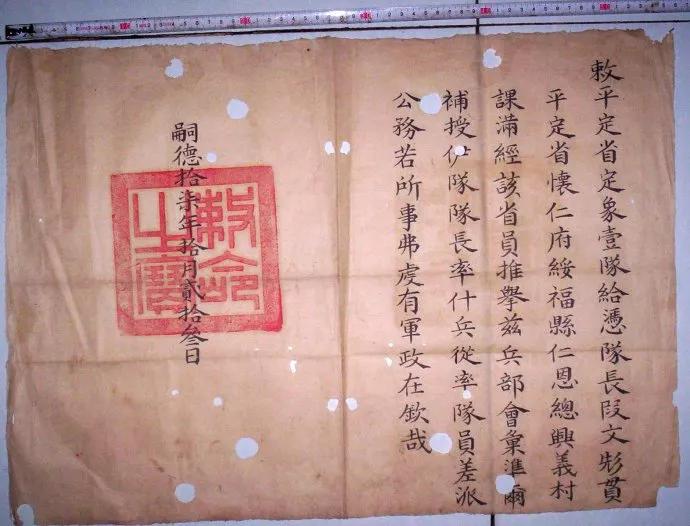 敕平定省定象壹隊給憑隊長段文彪貫
平定省懷仁府綏福縣仁恩總興義村
課滿經該省員推舉茲兵部會彙準爾
補授伊隊隊長率什兵從率隊員差派
公務若所事弗虔有軍政在欽哉
嗣德拾柒年拾月貳拾叁日
敕命之寶